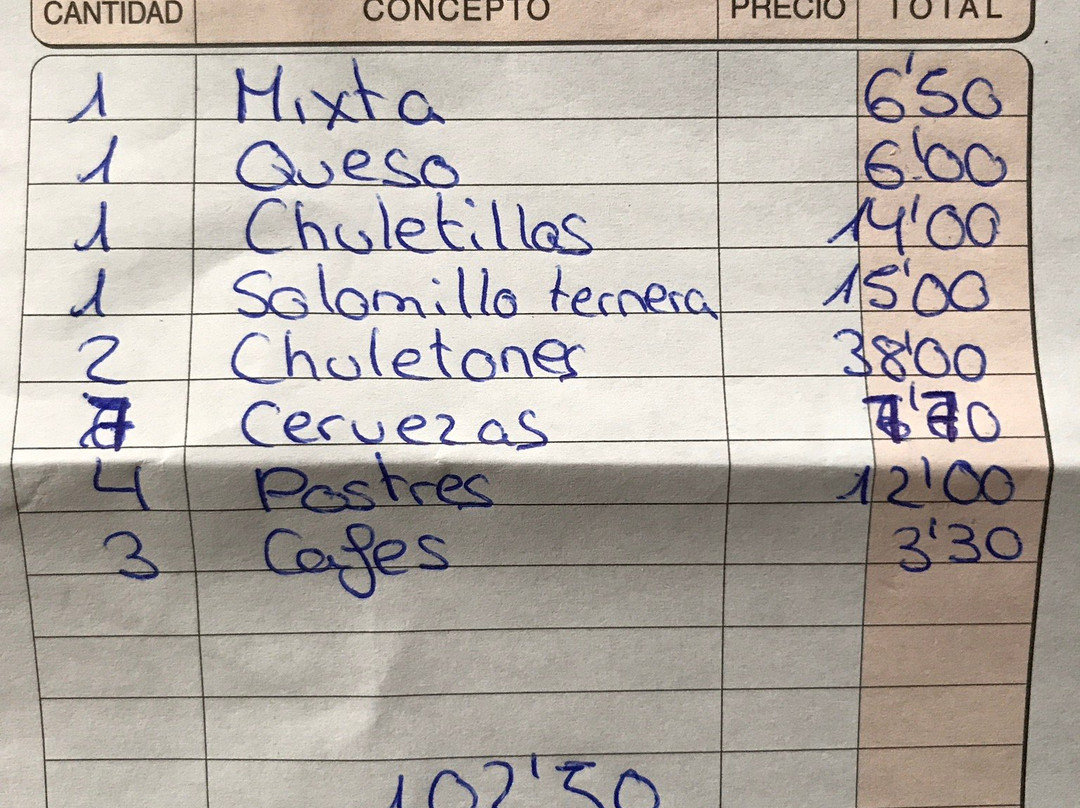 CANTIDAD CONCEPTO PRECIO TOTAL
1 Mixta 6'50
1 Queso 6'00
1 Chuletillas 14'00
1 Solomillo ternera 15'00
2 Chuletones 38'00
7 Cervezas 7'70
4 Postres 12'00
3 Cafes 3'30
102'50